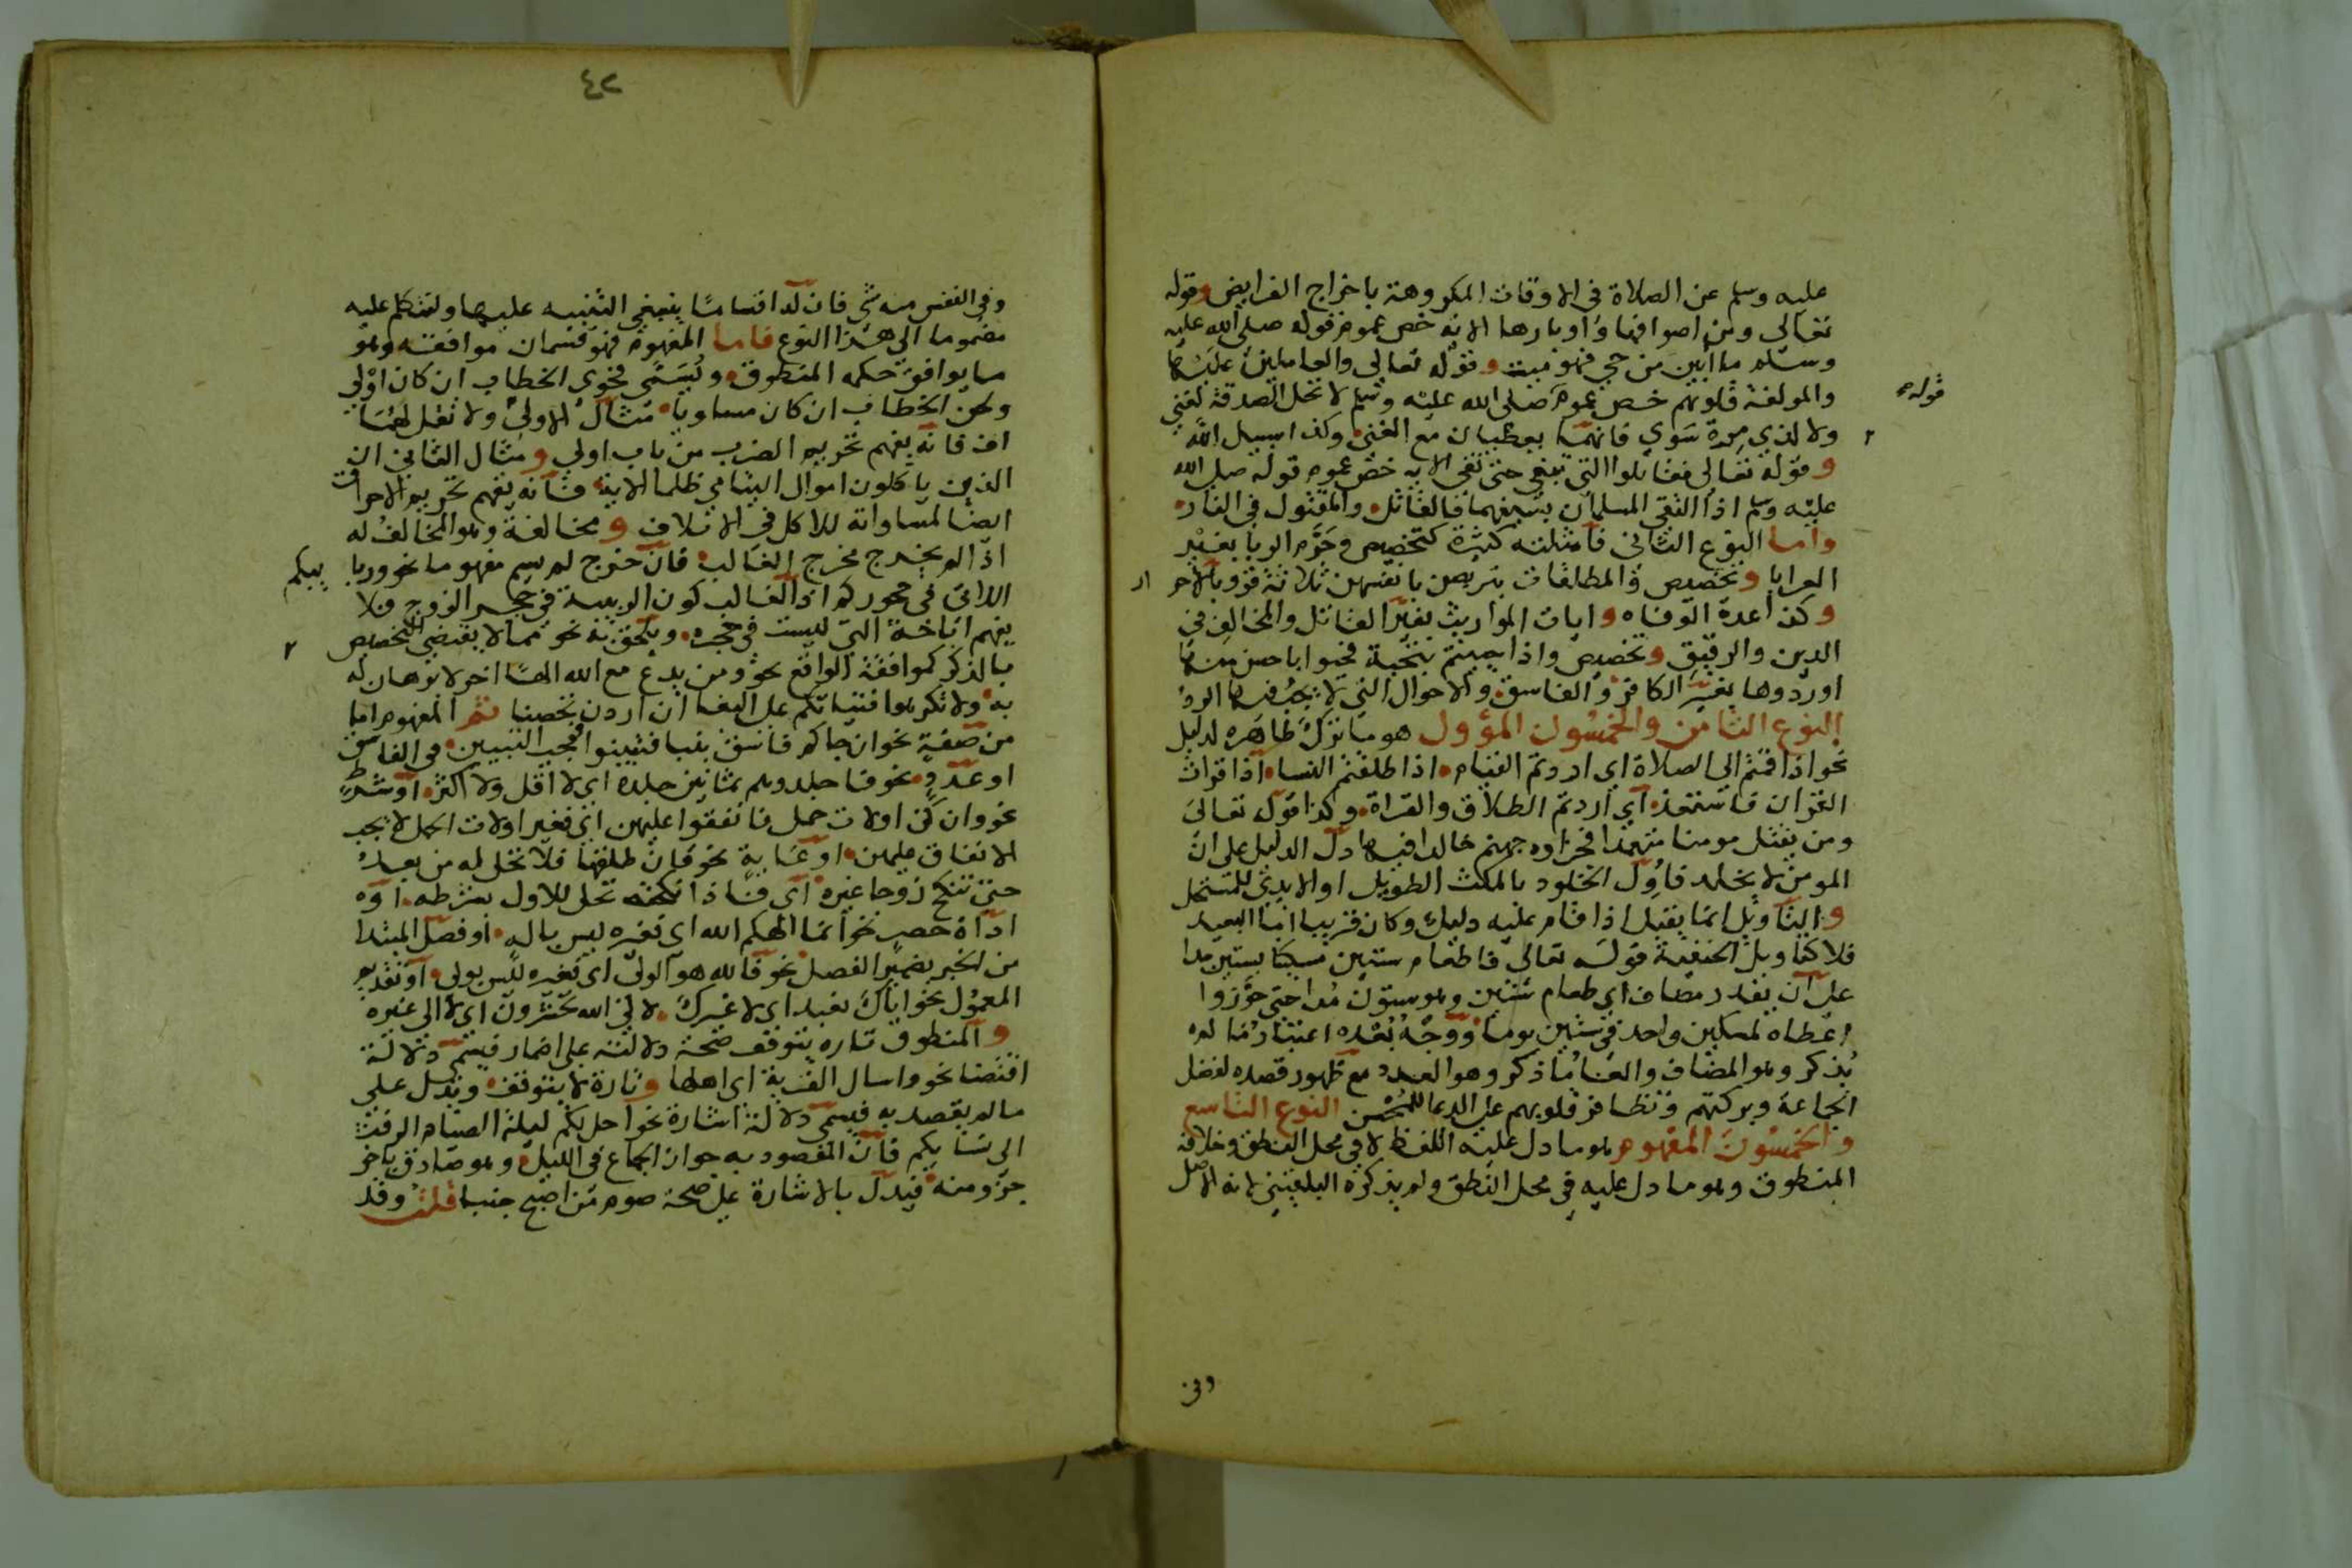 عليه وسلم عن الصلاة في الاوقات المكروهة باخراج الفرايض وقوله
تعالى ومن اصوافها واوبارها الاية خص عموم قوله صلى الله عليه
وسلم ما ابين من حي فهو ميت وقوله تعالى والعاملين عليها
والمولفة قلوبهم خص عموم صلى الله عليه وسلم لا تحل الصدقة لغني
قوله
ولا لذي مرة سوي فانهما يعطيان مع الغني وكذا سبيل الله
وقوله تعالى فقاتلوا التي تبغي حتى تفي الاية خص عموم قوله صلى الله
عليه وسلم اذا التقى المسلمان بسيفهما فالقاتل والمقتول في النار
واما النوع الثاني فامثلته كثيرة كتخصيص وحرم الربا بغير
العرايا وتخصيص والمطلقات يتربصن بانفسهن ثلاثة قروء بالاحرار
وكذا عدة الوفاه وايات المواريث بغير القاتل والمخالف في
الدين والرقيق وتخصيص واذا حييتم بتحية فحيوا باحسن منها
اوردوها بغير الكافر والفاسق والاحوال التي لا يجب فيها الرد
النوع الثامن والخمسون المؤول هو ما ترك ظاهره لدليل
نحو اذا قمتم الى الصلاة اي اردتم القيام اذا طلقتم النسا اذا قرات
القران فاستعذ اي اردتم الطلاق والقراة وكذا قوله تعالى
ومن يقتل مومنا متعمدا فجزاوه جهنم خالدا فيها دل الدليل على ان
المومن لا يخلد فاول الخلود بالمكث الطويل او الابدي للمستحل
والتاويل انما يقبل اذا قام عليه دليل وكان قريبا اما البعيد
فلا كتاويل الحنفية قوله تعالى فاطعام ستين مسكينا بستين مدا
على ان يقدر مضاف اي طعام ستين وهو ستون مدا حتى جوزوا
اعطاه لمسكين واحد في ستين يوما ووجه بعده اعتبار ما لم
يذكر وهو المضاف والغا ما ذكر وهو العدد مع ظهور قصده لفضل
الجماعة وبركتهم وتظافر قلوبهم على الدعا للمحسن النوع التاسع
والخمسون المفهوم هو ما دل عليه اللفظ لا في محل النطق وخلافه
المنطوق وهو ما دل عليه في محل النطق ولم يذكره البلقيني لانه الاصل
وفي
٤٢
وفي النفس منه شي فان له اقساما ينبغي التنبيه عليها ولنتكلم عليه
مضموما الى هذا النوع فاما المفهوم فهو قسمان موافقة وهو
ما يوافق حكمه المنطوق ويسمى فحوى الخطاب ان كان اولى
ولحن الخطاب ان كان مساويا مثال الاولى ولا تقل لهما
اف فانه يفهم تحريم الضرب من باب اولى ومثال الثاني ان
الذين ياكلون اموال اليتامي ظلما الاية فانه يفهم تحريم الاحراق
ايضا لمساواته للاكل في الاتلاف ومخالفة وهو المخالف له
اذا لم يخرج مخرج الغالب فان خرج لم يسم مفهوما نحو وربايبكم
اللاتي في حجوركم اذ الغالب كون الربيبة في حجر الزوج فلا
يفهم اباحة التي ليست في حجره ويلحق به نحو مما لا يقتضي التخصيص
بالذكر كموافقة الواقع نحو ومن يدع مع الله الها اخر لا برهان له
به ولا تكرهوا فتياتكم على البغا ان اردن تحصنا ثم المفهوم اما
من صفة نحو ان جاكم فاسق بنبا فتبينوا فيجب التبيين في الفاسق
او عدد نحو فاجلدوهم ثمانين جلده اي لا اقل ولا اكثر او شرط
نحو وان كن اولات حمل فانفقوا عليهن اي فغير اولات الحمل لا يجب
الانفاق عليهن او غاية نحو فان طلقها فلا تحل له من بعد
حتى تنكح زوجا غيره اي فاذا نكحته تحل للاول بشرطه او
اداة حصر نحو انما الهكم الله اي فغيره ليس باله او فصل المبتدا
من الخبر بضمير الفصل نحو فالله هو الولي اي فغيره ليس بولي او تقديم
المعمول نحو اياك نعبد اي لا غيرك لالى الله تحشرون اي لا الى غيره
والمنطوق تاره يتوقف صحة دلالته على اضمار فيسمى دلالة
اقتضا نحو واسال القرية اي اهلها وتارة لا يتوقف ويدل على
ما لم يقصد به فيسمى دلالة اشارة نحو احل لكم ليلة الصيام الرفث
الى نسايكم فان المقصود به جواز الجماع في الليل وهو صادق باخر
جزو منه فيدل بالاشارة على صحة صوم من اصبح جنبا قلت وقد